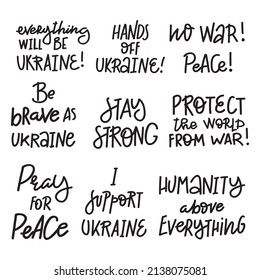 everything
WILL BE
UKRAINE!
HANDS
OFF
UKRAINE!
NO WAR!
PEACE!
Be
brave AS
UKRAINE
STAY
STRONG
PROTECT
the WORLD
FROM WAR!
Pray
FOR
PeACe
I
SUPPORT
UKRAINE
HUMANITY
above
EVERYTHING
shutterstock.com · 2138075081